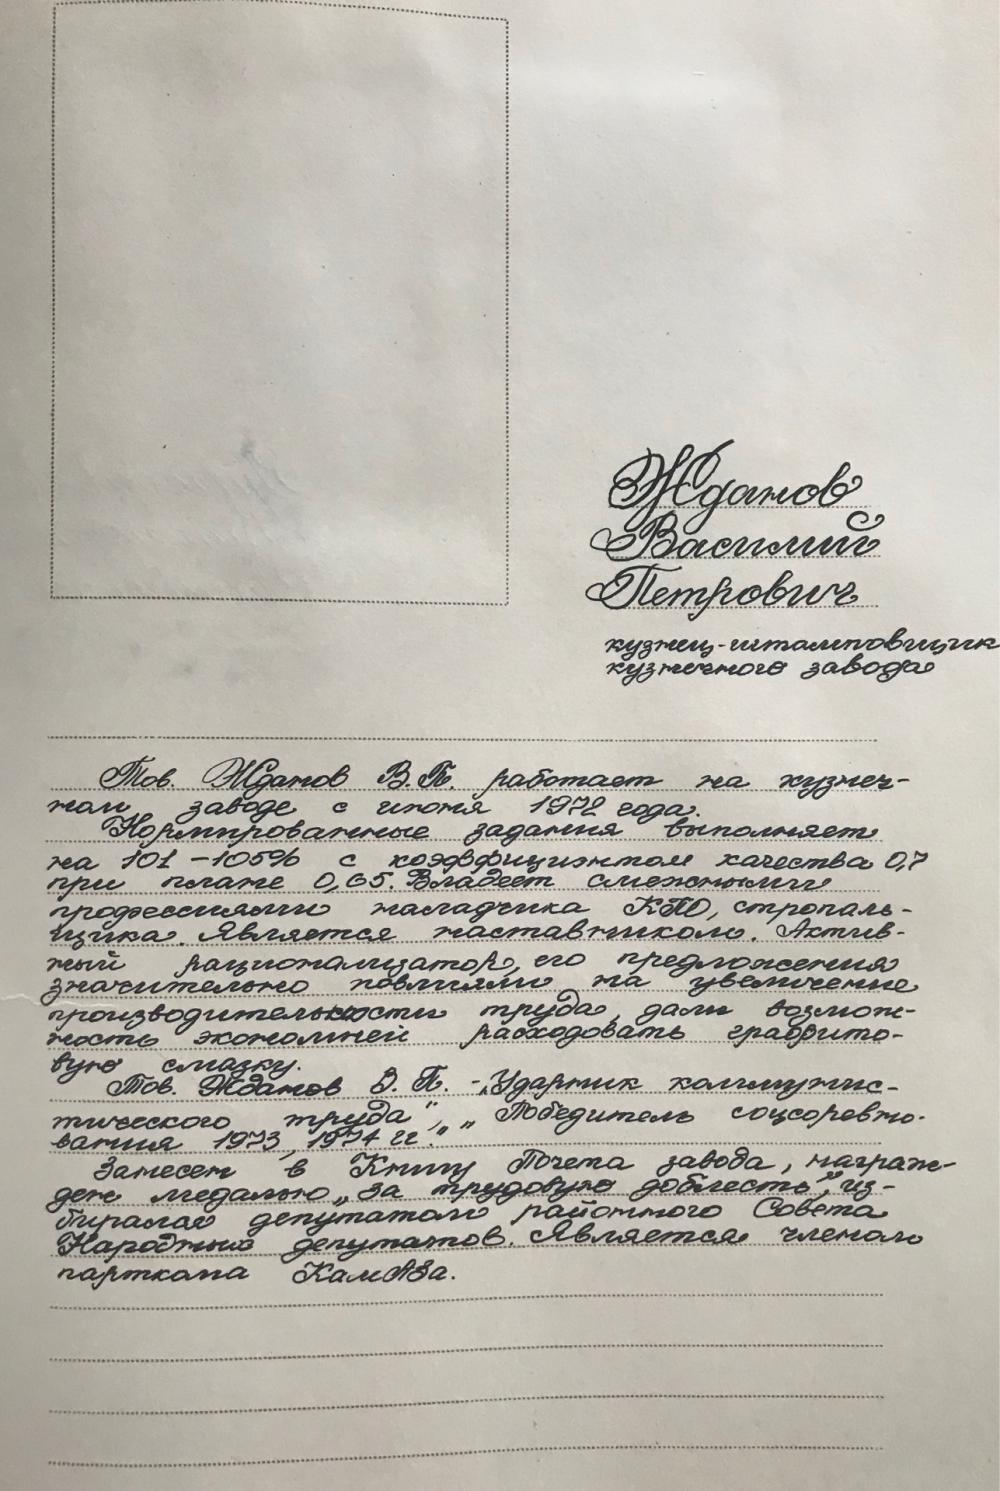 Жданов
Василий
Петрович
кузнец-штамповщик
кузнечного завода
Тов. Жданов В.П. работает на кузнеч-
ном заводе с июня 1972 года.
Нормированные задания выполняет
на 101-105% с коэффициэнтом качества 0,7
при плане 0,65. Владеет смежными
профессиями наладчика КПО, стропаль-
щика. Является наставником. Актив-
ный рационализатор, его предложения
значительно повлияли на увеличение
производительности труда, дали возмож-
ность экономней расходовать графито-
вую смазку.
Тов. Жданов В.П. - „Ударник коммунис-
тического труда", „Победитель соцсоревно-
вания 1973, 1974 гг."
Занесен в Книгу Почета завода, награж-
ден медалью „За трудовую доблесть", из-
бирался депутатом районного Совета
Народных депутатов. Является членом
парткома КамАЗа.